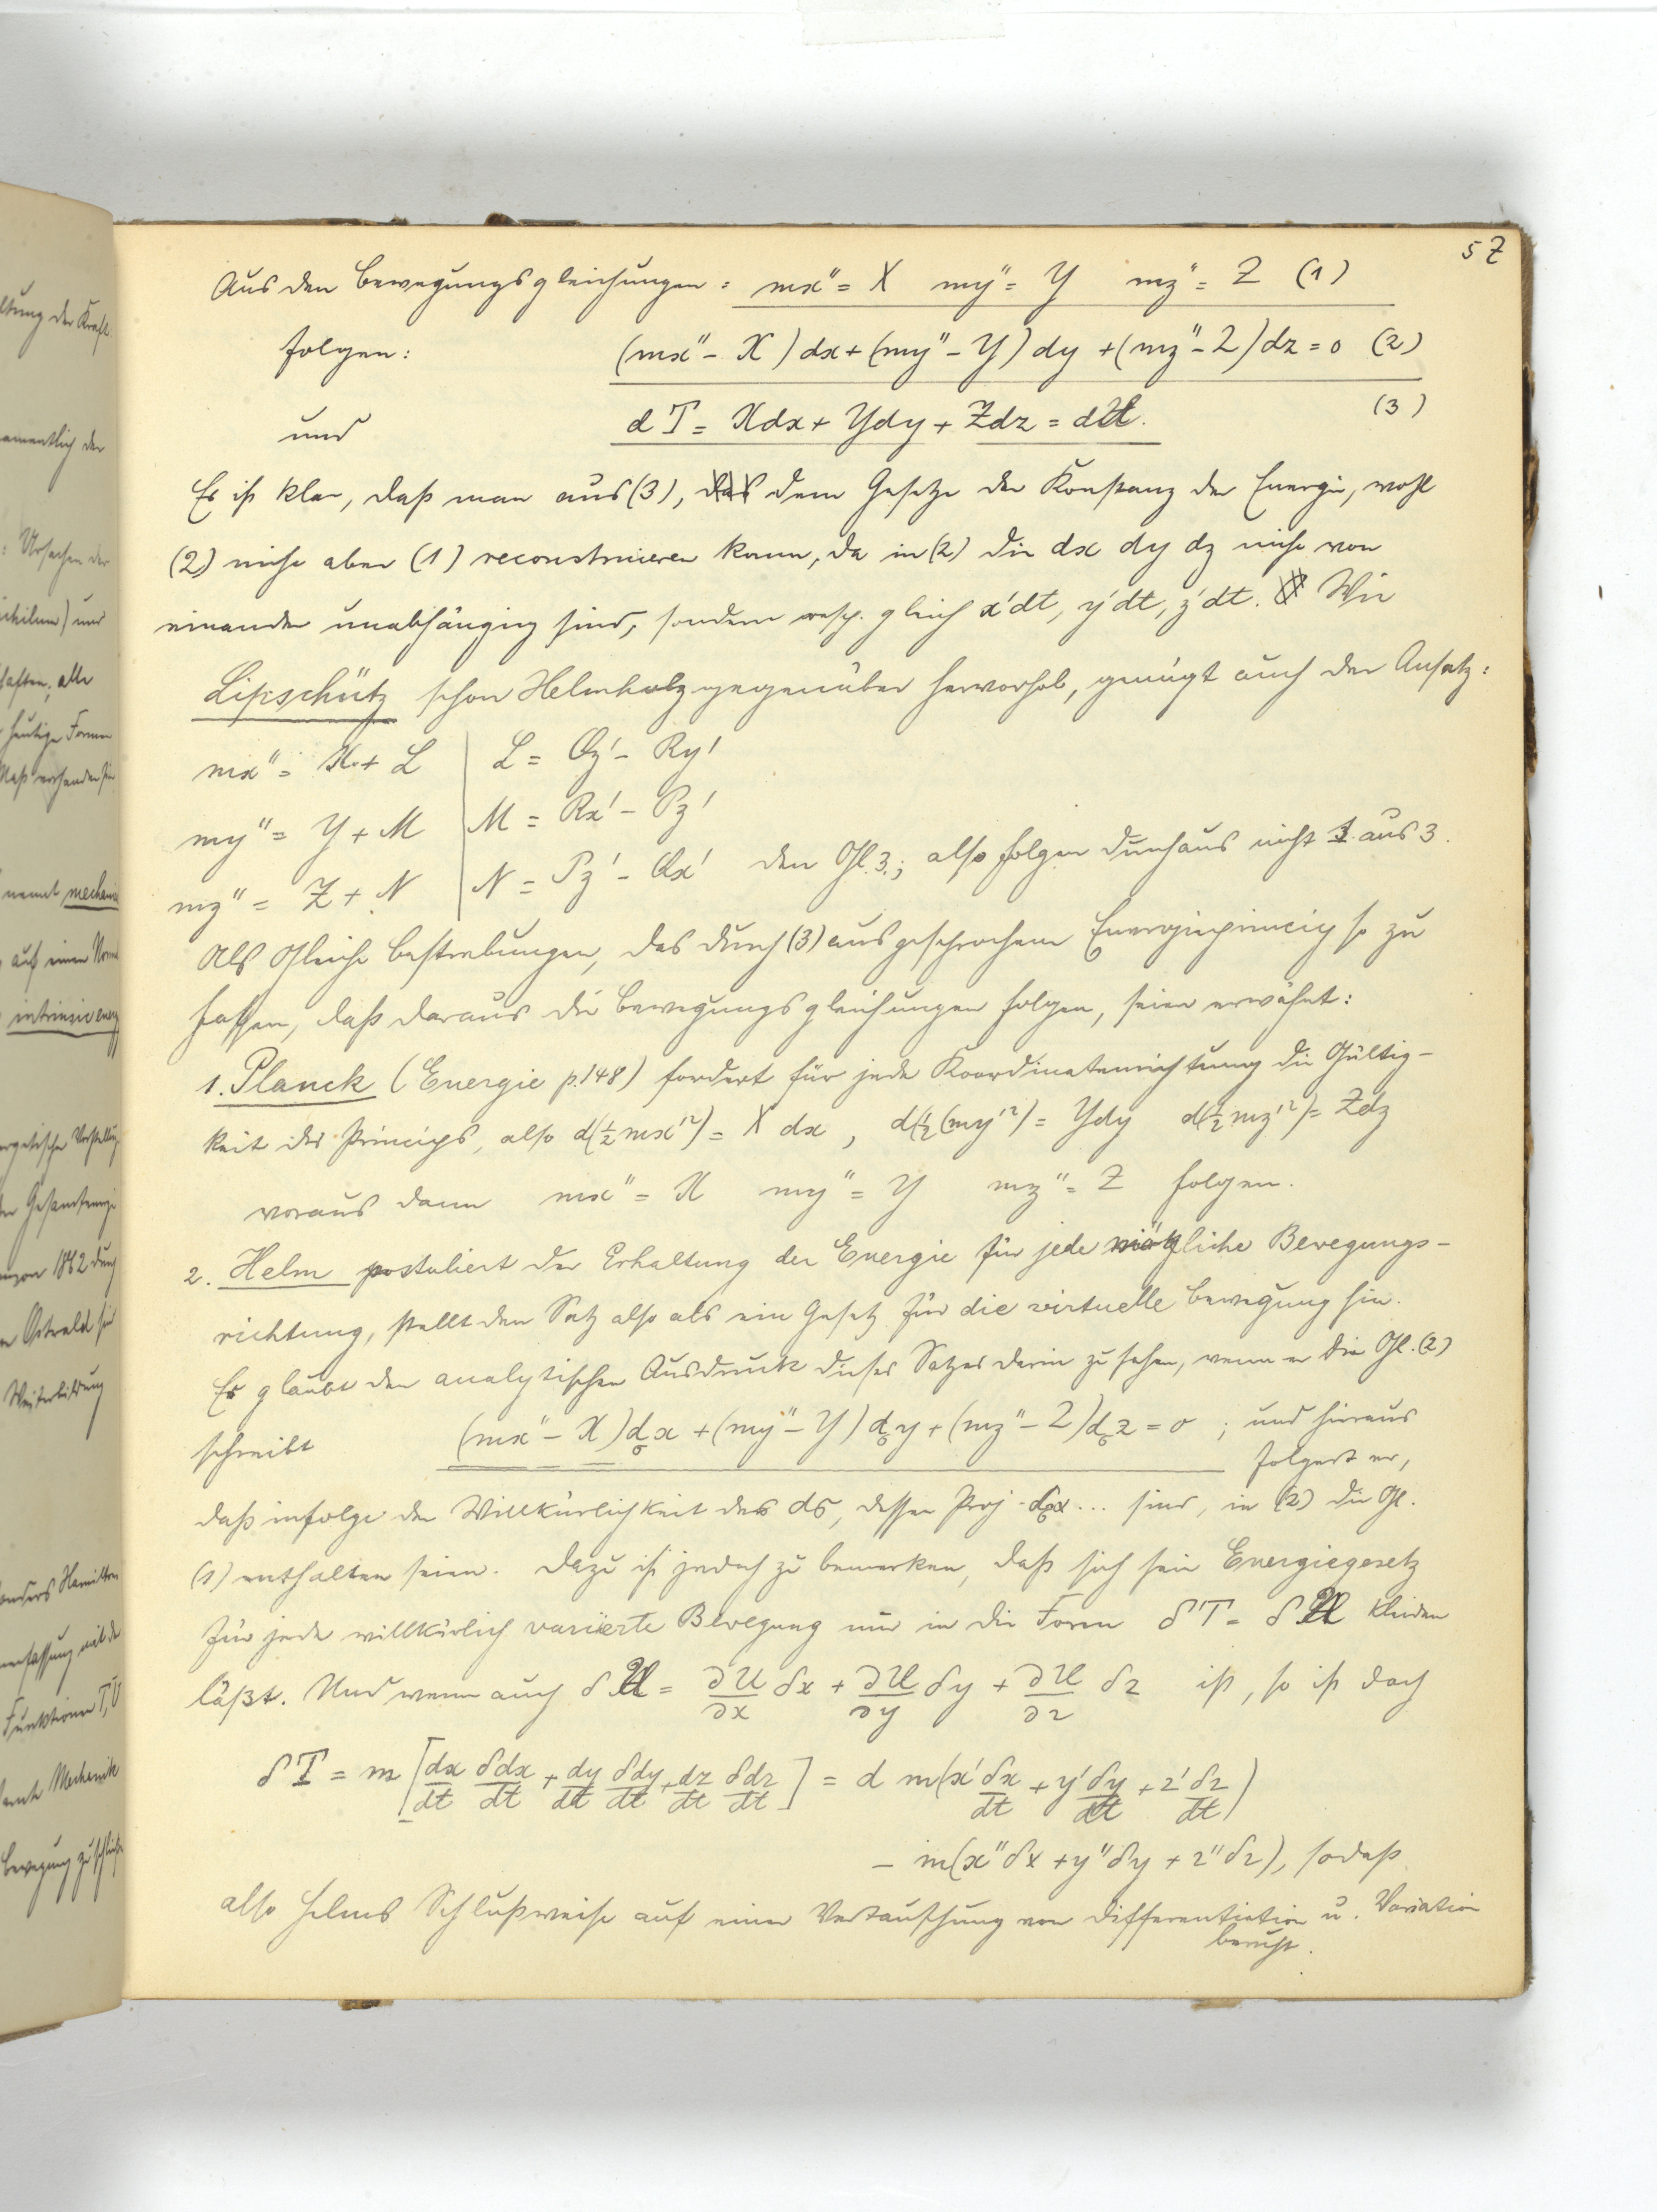 57
Aus den Bewegungsgleichungen: mx'' = X my'' = Y mz'' = Z (1)
folgen: (mx'' - X) dx + (my'' - Y) dy + (mz'' - Z) dz = 0 (2)
und dT = Xdx + Ydy + Zdz = dU. (3)
Es ist klar, daß man aus (3), das dem Gesetze der Konstanz der Energie, wohl
(2) nicht aber (1) reconstruieren kann, da in (2) die dx dy dz nicht von
einander unabhängig sind, sondern resp. gleich x'dt, y'dt, z'dt. Wie
Lipschütz schon Helmholz gegenüber hervorhob, genügt auch der Ansatz:
mx'' = X + L | L = Qz' - Ry'
my'' = Y + M | M = Rx' - Pz'
mz'' = Z + N | N = Pz' - Qx' den Gl. 3.; also folgen durchaus nicht 1 aus 3.
Als Gleiche Bestrebungen, das durch (3) ausgesprochene Energieprincip so zu
fassen, daß daraus die Bewegungsgleichungen folgen, seien erwähnt:
1. Planck (Energie p. 148) fordert für jede Koordinatenrichtung die Gültig-
keit des Princips, also d(½ mx'²) = X dx, d(½ (my'²) = Ydy d(½ mz'²) = Zdz
woraus dann mx'' = X my'' = Y mz'' = Z folgen.
2. Helm postuliert der Erhaltung der Energie für jede mögliche Bewegungs-
richtung, stellt den Satz also als ein Gesetz für die virtuelle Bewegung hin.
Er glaubt den analytischen Ausdruck dieses Satzes darin zu sehen, wenn er die Gl. (2)
schreibt (mx'' - X) dσx + (my'' - Y) dσy + (mz'' - Z) dσz = 0 ; und hieraus
folgert er,
daß infolge der Willkürlichkeit des dσ, dessen Proj. dσx ... sind, in (2) die Gl.
(1) enthalten seien. Dazu ist jedoch zu bemerken, daß sich sein Energiegesetz
für jede willkürlich variierte Bewegung nur in die Form δT = δU kleiden
läßt. Und wenn auch δU = ∂U/∂x δx + ∂U/∂y δy + ∂U/∂z δz ist, so ist doch
δT = m [dx/dt δdx/dt + dy/dt δdy/dt + dz/dt δdz/dt] = d m(x' δx/dt + y' δy/dt + z' δz/dt)
- m(x''δx + y''δy + z''δz), sodaß
also Helms Schlußweise auf einer Vertauschung von Differentiation u. Variation
beruht.